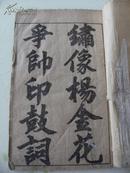 繡像楊金花
爭帥印鼓詞